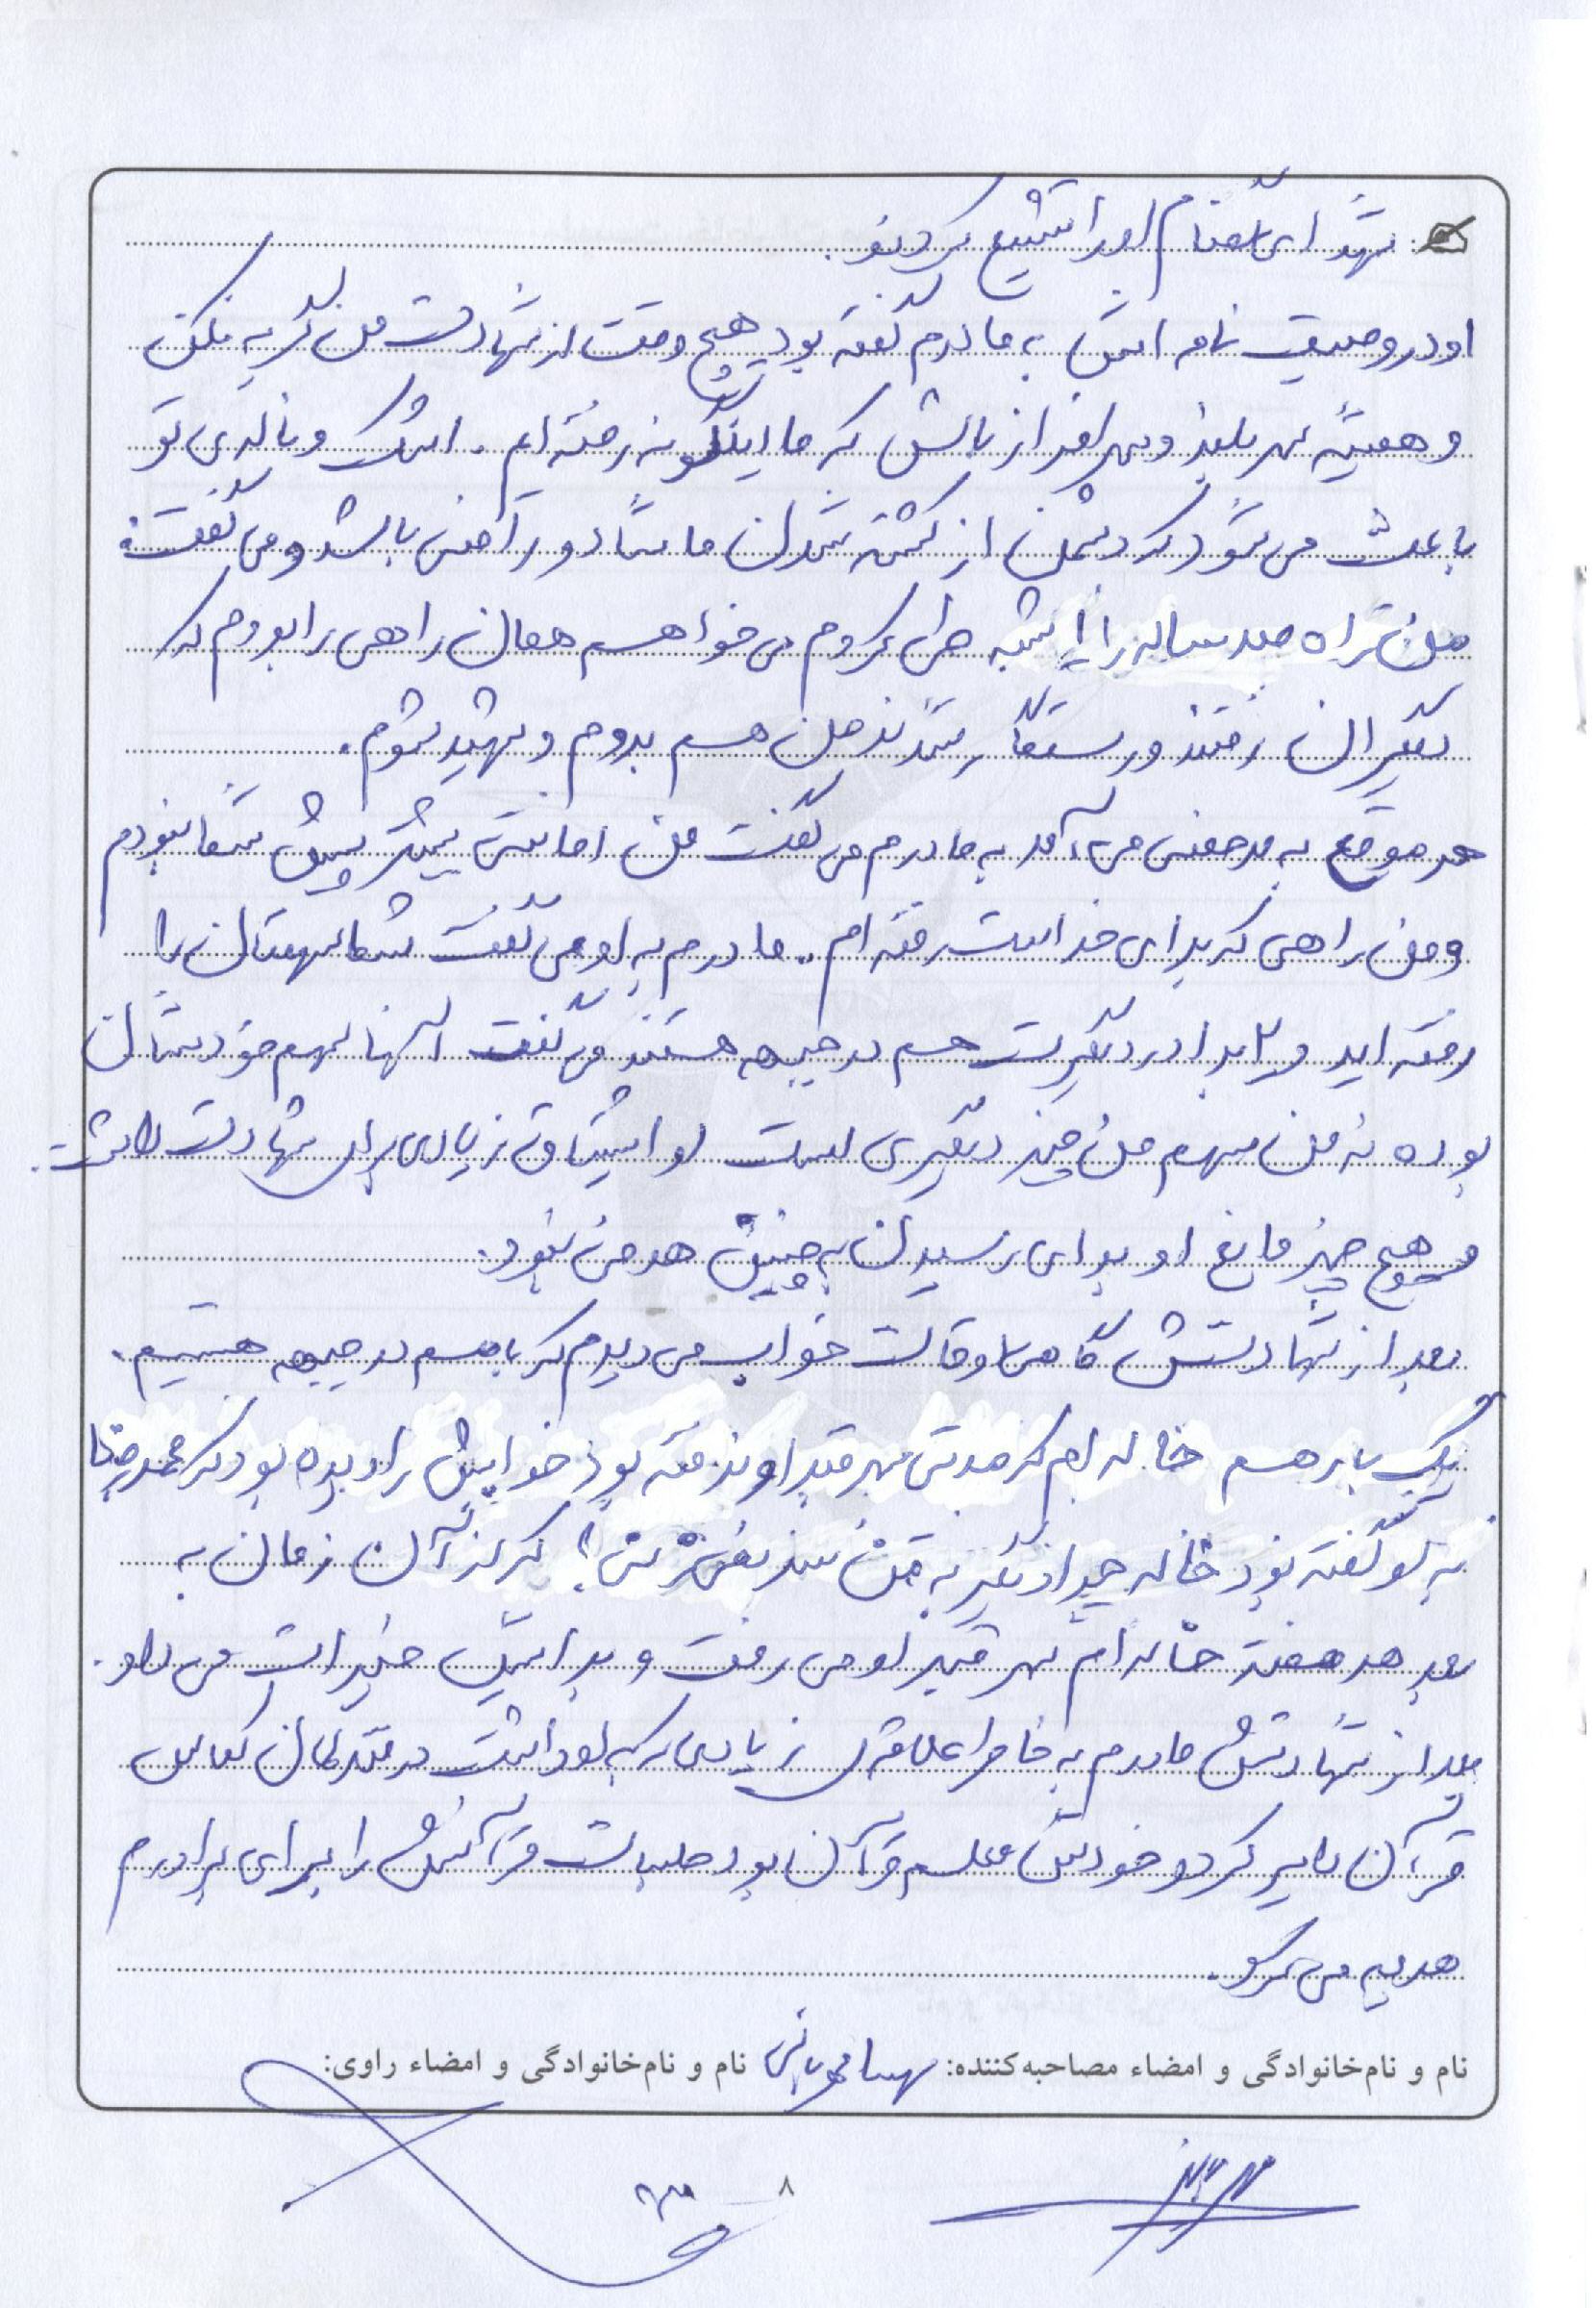 شهدای گمنام او را تشییع کردند.
او در وصیت نامه اش به مادرم گفته بود هیچ وقت از شهادت من گریه نکن
و همیشه سربلند و سرافراز باش که ما اینگونه رفته ایم. اشک و ناله ی تو
باعث می شود که دشمن از کشته شدن ما شاد و راضی باشد و می گفت:
من راه صد ساله را یک شبه طی کردم می خواهم همان راهی را بروم که
دیگران رفتند و رستگار شدند من هم بروم و شهید شوم.
هر موقع به مرخصی می آمد به مادرم می گفت من امانتی بیشتر پیش شما نبودم
و من راهی که برای خداست رفته ام. مادرم به او می گفت شما سهمتان را
رفته اید و برادر دیگرت هم در جبهه هستند می گفت آنها سهم خودشان
بوده نه من سهم من چیز دیگری است او اشتیاق زیادی برای شهادت داشت.
و هیچ چیز مانع او برای رسیدن به چنین هدفی نبود.
بعد از شهادتش گاهی اوقات خواب می دیدم که با هم در جبهه هستیم.
یک بار هم خاله ام که مدتی سر قبر او نرفته بود خوابش را دیده بود که محمدرضا
به او گفته بود خاله چرا دیگر به من سر نمی زنی؟ که از آن زمان به
بعد هر هفته خاله ام سر قبر او می رفت و برایش خیرات می داد.
بعد از شهادتش مادرم به خاطر علاقه ی زیادی که به او داشت در کلاس
قرآن دایر کرد و خودش معلم قرآن بود جلسات قرآنش را برای برادرم
هدیه می کرد.
نام و نام‌خانوادگی و امضاء مصاحبه‌کننده: نام و نام‌خانوادگی و امضاء راوی:
۸